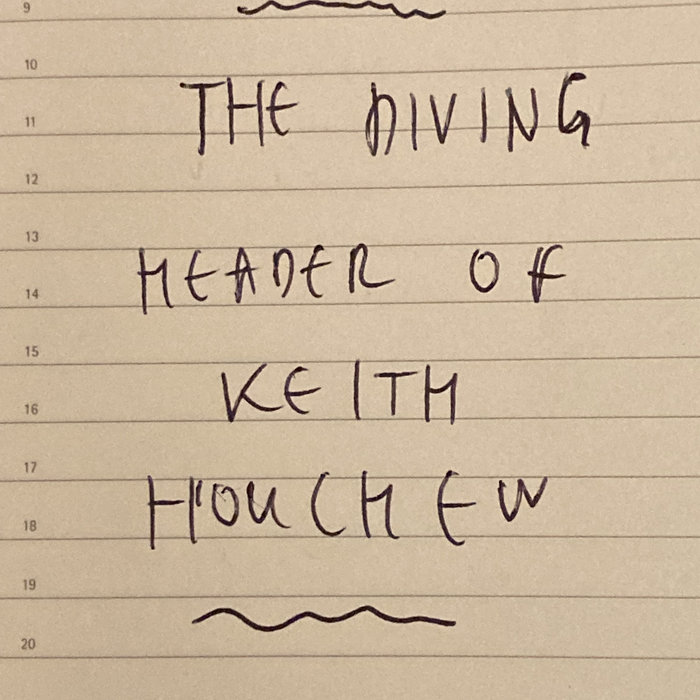 9
10
THE DIVING
11
12
13
HEADER OF
14
15
KEITH
16
17
HOUCHEW
18
19
20